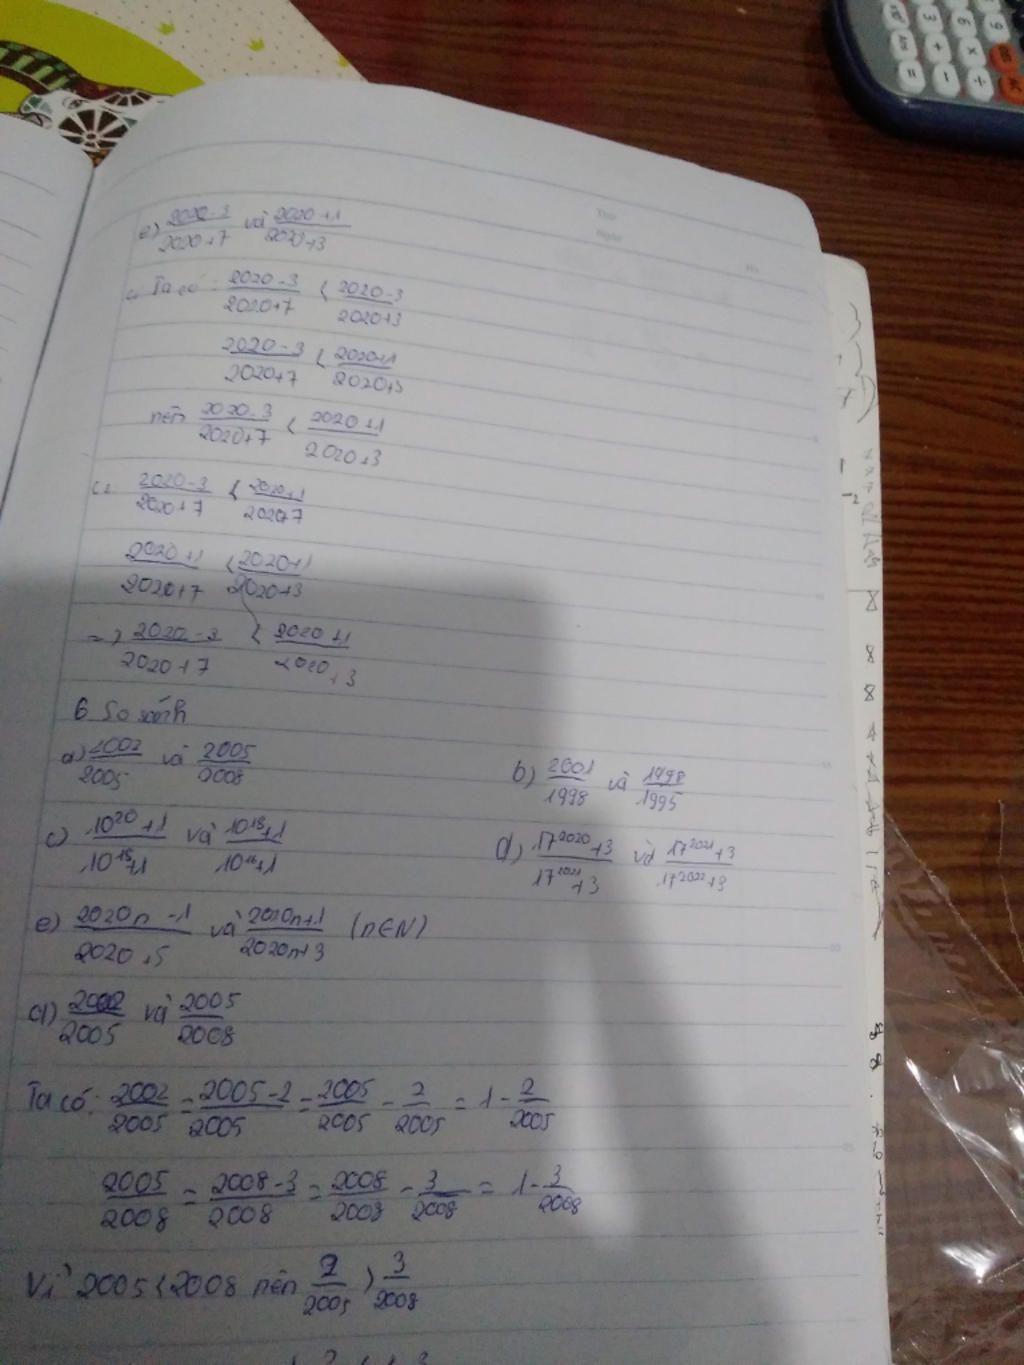 e) \frac{2020-3}{2020+7} và \frac{2020+1}{2020+3}
Ta có: \frac{2020-3}{2020+7} < \frac{2020-3}{2020+3}
\frac{2020-3}{2020+7} < \frac{2020+1}{2020+3}
nên \frac{2020-3}{2020+7} < \frac{2020+1}{2020+3}
\frac{2020-3}{2020+7} < \frac{2020+1}{2020+7}
\frac{2020+1}{2020+7} < \frac{2020+1}{2020+3}
=> \frac{2020-3}{2020+7} < \frac{2020+1}{2020+3}
6 So sánh
a) \frac{2002}{2005} và \frac{2005}{2008} b) \frac{2001}{1998} và \frac{1998}{1995}
c) \frac{10^{20}+1}{10^{18}+1} và \frac{10^{18}+1}{10^{16}+1} d) \frac{17^{2020}+3}{17^{2021}+3} và \frac{17^{2021}+3}{17^{2022}+3}
e) \frac{2020n-1}{2020+5} và \frac{2020n+1}{2020n+3} (n∈N)
a) \frac{2002}{2005} và \frac{2005}{2008}
Ta có: \frac{2002}{2005} = \frac{2005-2}{2005} = \frac{2005}{2005} - \frac{2}{2005} = 1 - \frac{2}{2005}
\frac{2005}{2008} = \frac{2008-3}{2008} = \frac{2008}{2008} - \frac{3}{2008} = 1 - \frac{3}{2008}
Vì 2005 < 2008 nên \frac{2}{2005} > \frac{3}{2008}